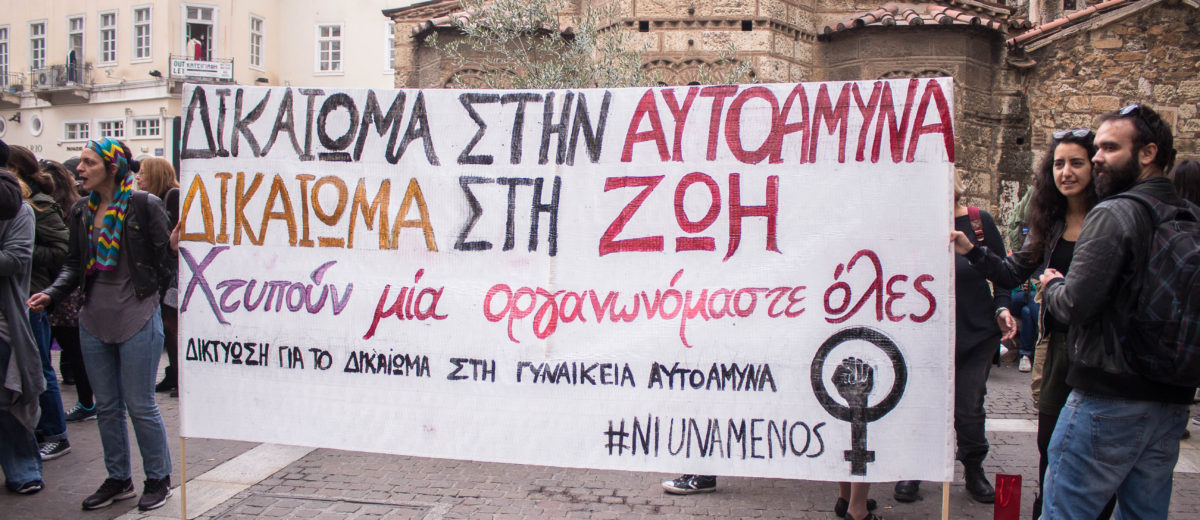 ΔΙΚΑΙΩΜΑ ΣΤΗΝ ΑΥΤΟΑΜΥΝΑ
ΔΙΚΑΙΩΜΑ ΣΤΗ ΖΩΗ
Χτυπούν μία οργανωνόμαστε όλες
ΔΙΚΤΥΩΣΗ ΓΙΑ ΤΟ ΔΙΚΑΙΩΜΑ ΣΤΗ ΓΥΝΑΙΚΕΙΑ ΑΥΤΟΑΜΥΝΑ
#NIUNAMENOS
OUT